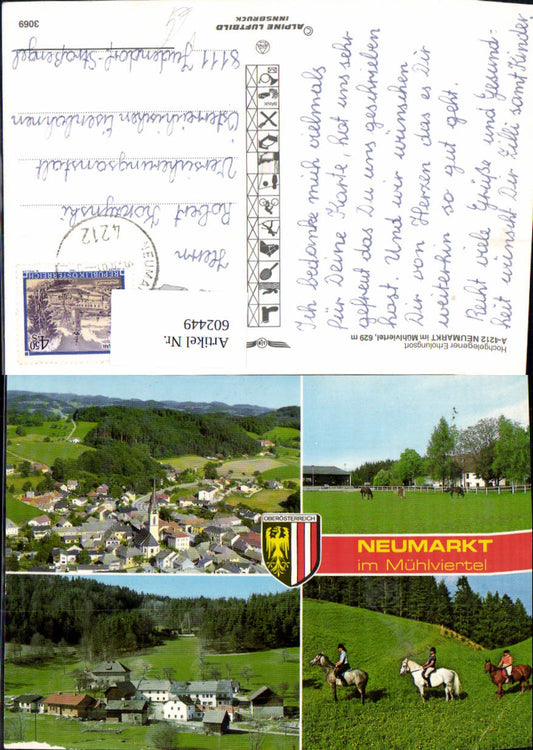 Hochgelegener Erholungsort
A-4212 NEUMARKT im Mühlviertel, 629 m
Ich bedanke mich vielmals
für Deine Karte, hat uns sehr
gefreut das Du uns geschrieben
hast. Und wir wünschen
Dir von Herzen das es Dir
weiterhin so gut geht.
Recht viele Grüße und Gesund-
heit wünscht Dir Zilli samt Kinder
© ALPINE LUFTBILD
INNSBRUCK
Artikel Nr.
602449
REPUBLIK ÖSTERREICH
4.50
4212
NEUMA
Herrn
Robert
Versicherungsanstalt
Österreichischen Eisenbahnen
8111 Judendorf Straßengel
3069
OBERÖSTERREICH
NEUMARKT
im Mühlviertel